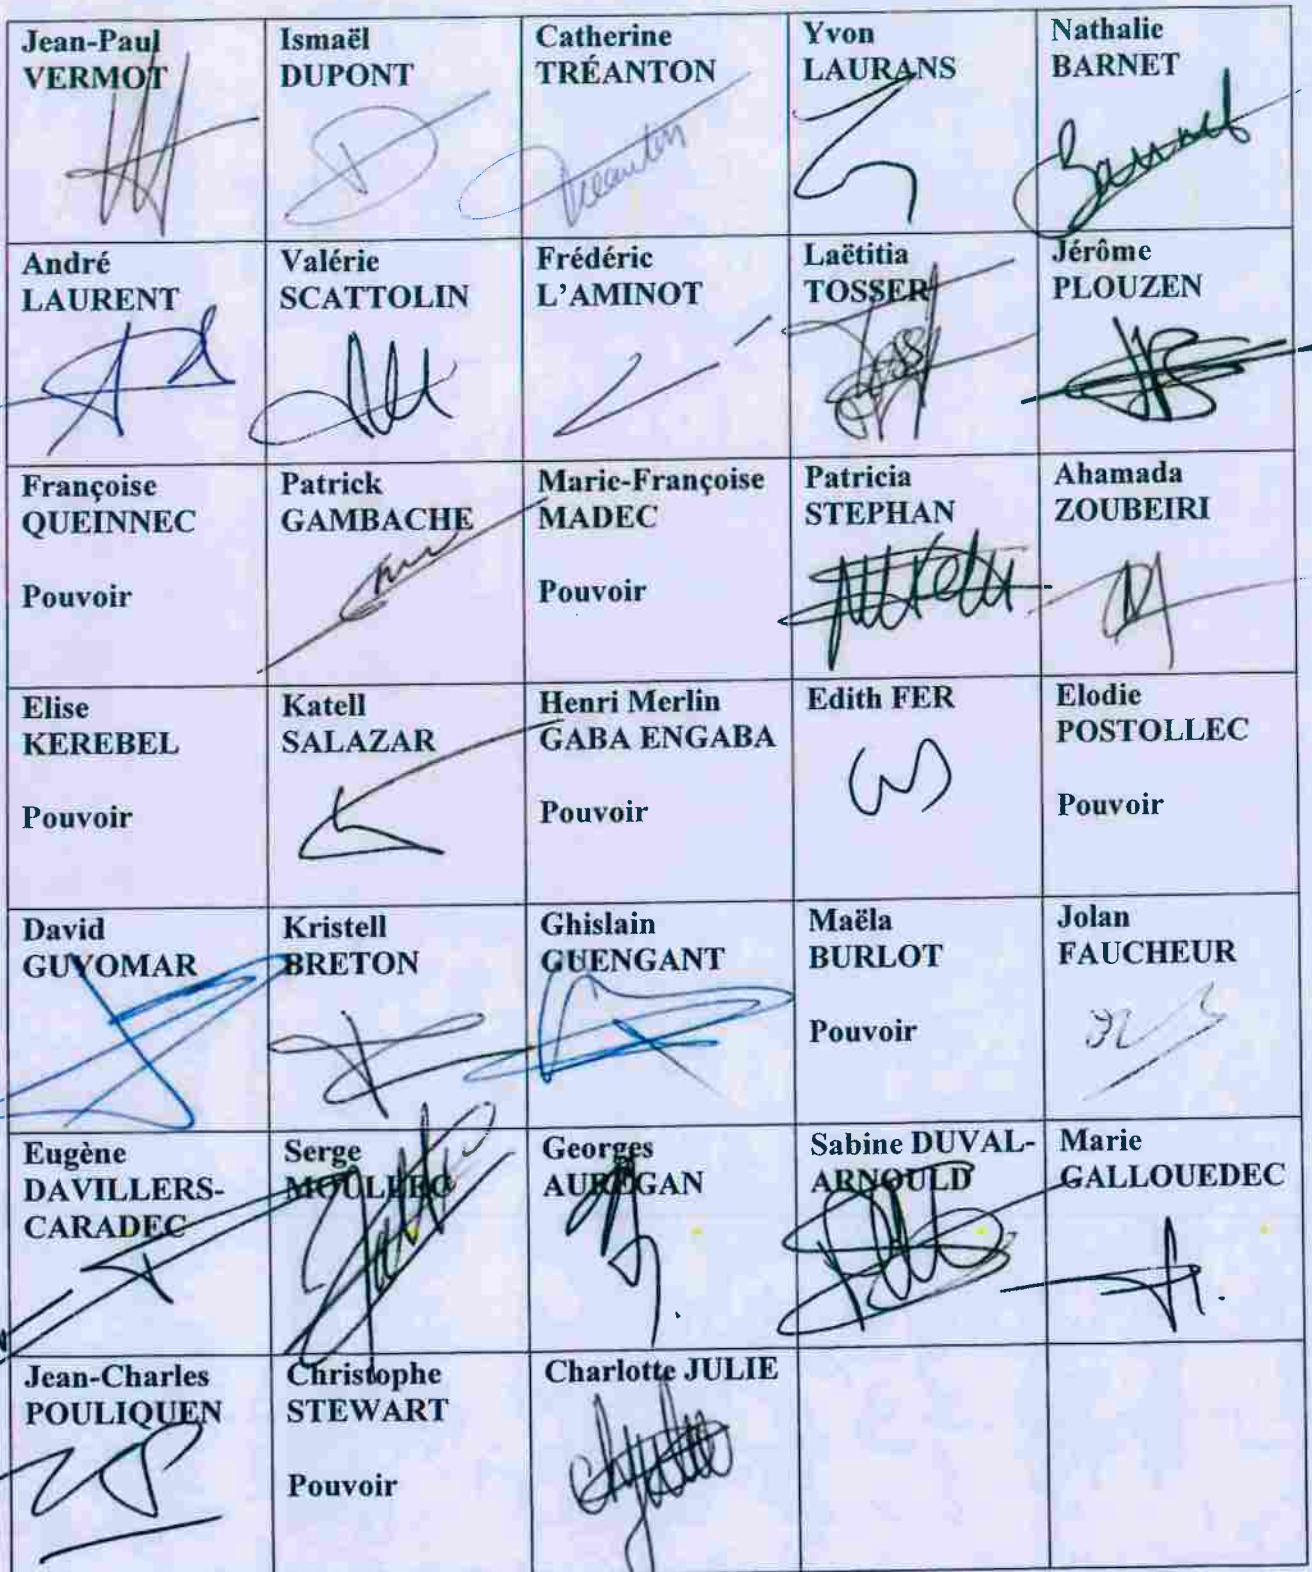 Jean-Paul
VERMOT
Ismaël
DUPONT
Catherine
TRÉANTON
Yvon
LAURANS
Nathalie
BARNET
Barnet
André
LAURENT
Valérie
SCATTOLIN
Frédéric
L'AMINOT
Laëtitia
TOSSER
Jérôme
PLOUZEN
Françoise
QUEINNEC
Pouvoir
Patrick
GAMBACHE
Marie-Françoise
MADEC
Pouvoir
Patricia
STEPHAN
Ahamada
ZOUBEIRI
Elise
KEREBEL
Pouvoir
Katell
SALAZAR
Henri Merlin
GABA ENGABA
Pouvoir
Edith FER
Elodie
POSTOLLEC
Pouvoir
David
GUYOMAR
Kristell
BRETON
Ghislain
GUENGANT
Maëla
BURLOT
Pouvoir
Jolan
FAUCHEUR
Eugène
DAVILLERS-
CARADEC
Serge
MOULLEC
Georges
AUREGAN
Sabine DUVAL-
ARNOULD
Marie
GALLOUEDEC
Jean-Charles
POULIQUEN
Christophe
STEWART
Pouvoir
Charlotte JULIE